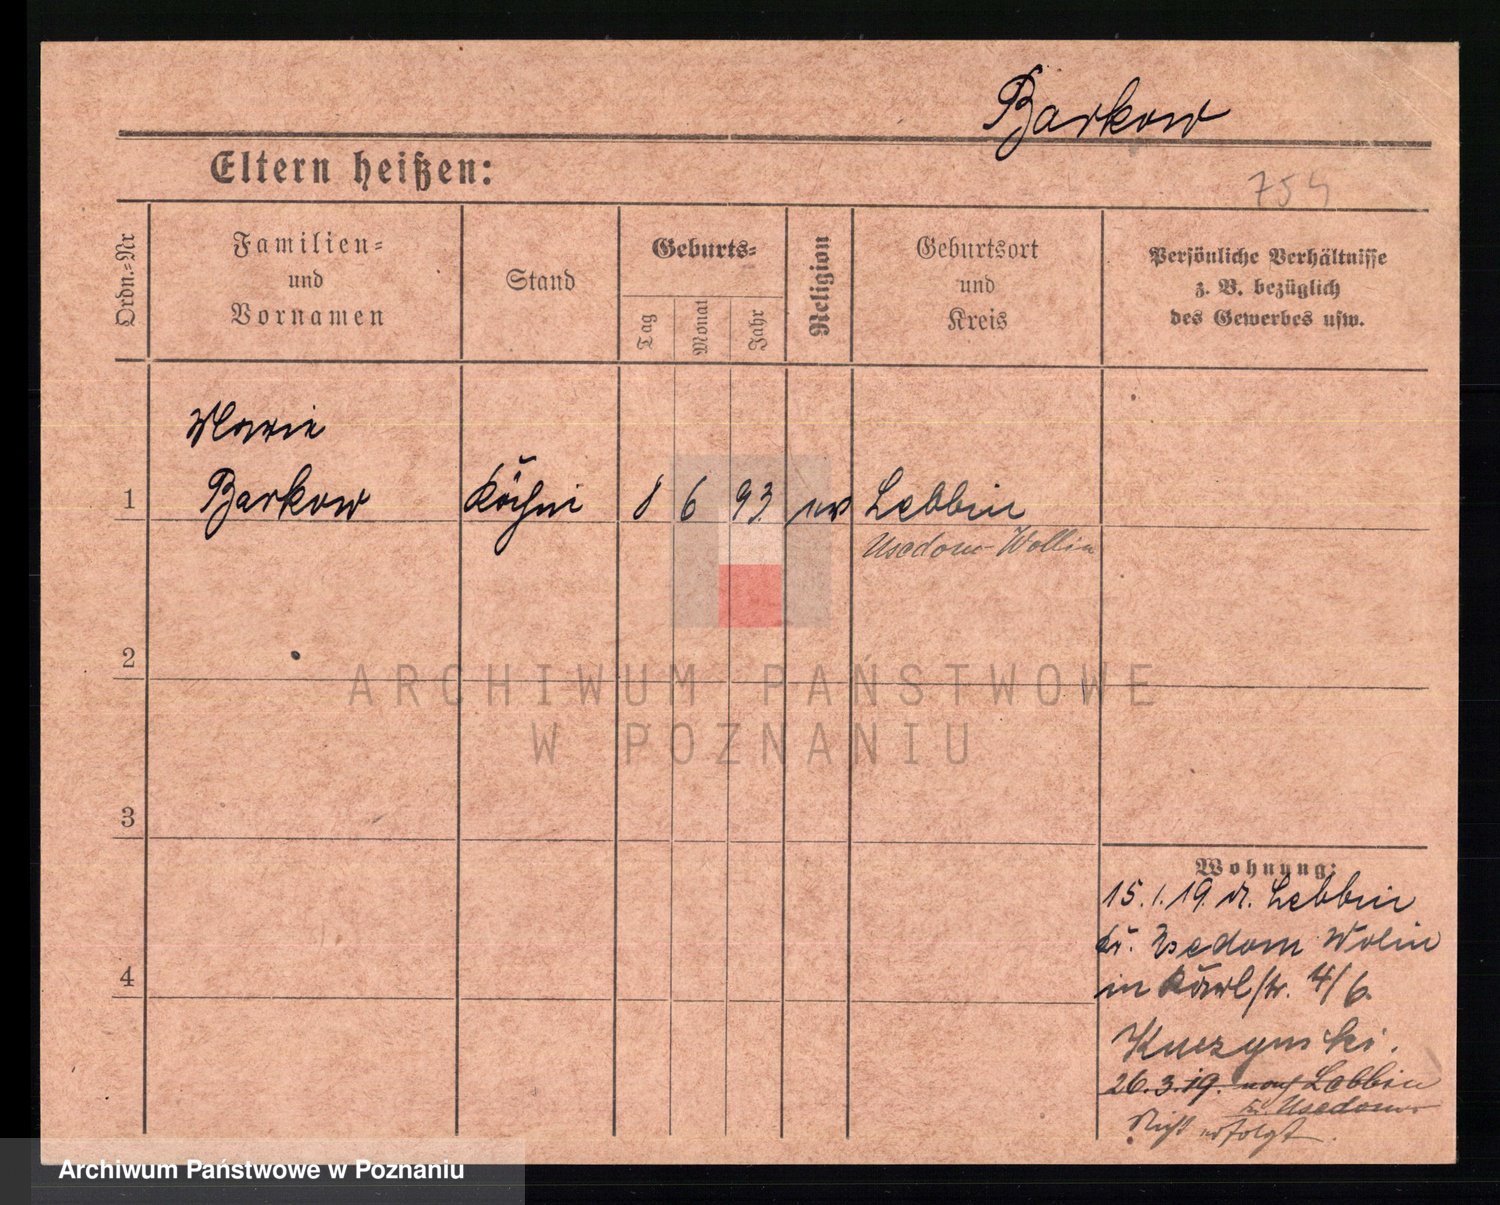 Barkow
Eltern heißen:
754
Ordn.=Nr
Familien=
und
Vornamen
Stand
Geburts=
Tag
Monat
Jahr
Religion
Geburtsort
und
Kreis
Persönliche Verhältnisse
z. B. bezüglich
des Gewerbes usw.
Marie
1 Barkow Köchin 8 6 93 ev Lebbin
Usedom-Wollin
2
3
4
Wohnung:
15.1.19. v. Lebbin
Kr. Usedom Wolin
in Karlstr. 4/6
Kuczynski.
26.3.19. nach Lebbin
Kr. Usedom
Nicht erfolgt.
ARCHIWUM PAŃSTWOWE
W POZNANIU
Archiwum Państwowe w Poznaniu